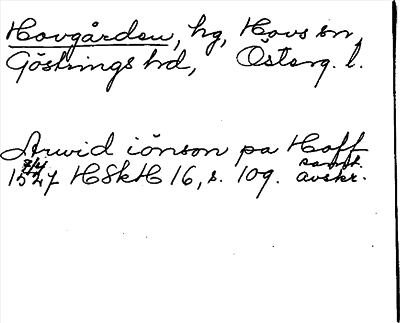 Hovgården, hg, Hovs sn,
Göstrings hd, Österg. l.
Arwid iönson pa Hoff
samt.
1527 7/4 HSkH 16, s. 109. avskr.